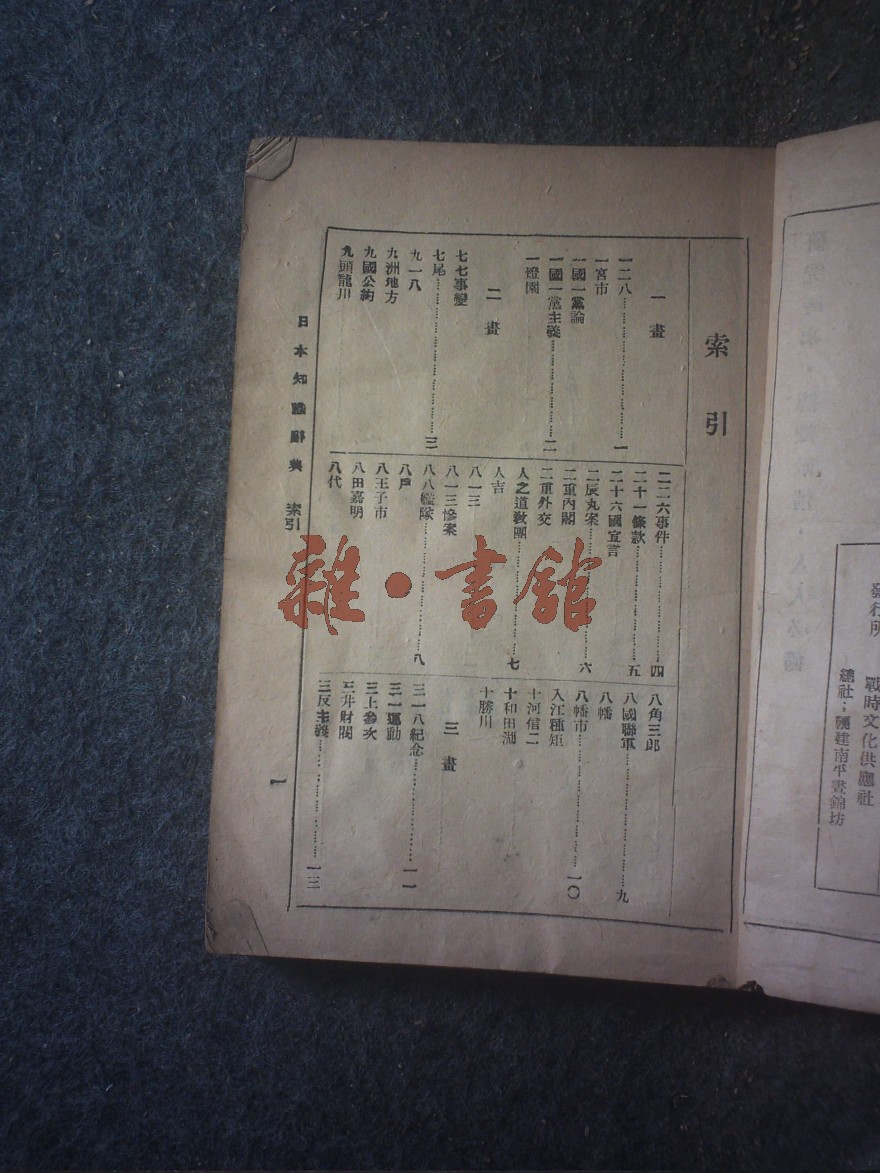 發行所
戰時文化供應社
總社；福建南平晝錦坊
索引
一畫
一二八……………………一
一宮市
一國一黨論
一國一黨主義……………………二
一燈園
二畫
七七事變
七尾……………………三
九一八
九洲地方
九國公約
九頭龍川
二二六事件……………………四
二十一條款……………………五
二十六國宣言
二辰丸案……………………六
二重內閣
二重外交
人之道教團……………………七
人吉
八一三
八一三慘案
八八艦隊……………………八
八戶
八王子市
八田嘉明
八代
八角三郎
八國聯軍……………………九
八幡
八幡市……………………一〇
入江種矩
十河信二
十和田湖
十勝川
三畫
三一八紀念……………………一一
三一運動
三上參次
三井財閥
三反主義……………………一三
日本知識辭典 索引
一
雜·書館